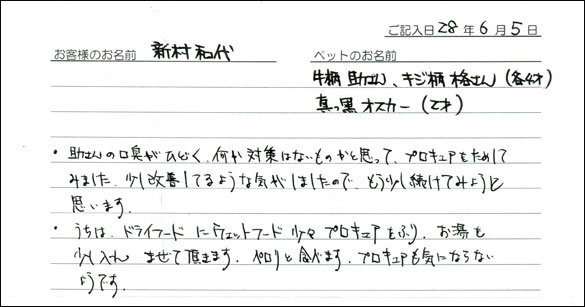 ご記入日 28 年 6 月 5 日
お客様のお名前 新村和代 ペットのお名前
牛柄 助さん、キジ柄 格さん（各4才）
真っ黒 オスカー（2才）
・助さんの口臭がひどく、何か対策はないものかと思って、プロキュアをためして
みました。少し改善してるような気がしましたので、もう少し続けてみようと
思います。
・うちは、ドライフードにウェットフード少々プロキュアをふり、お湯を
少し入れ まぜて頂きます。ペロリと食べます。プロキュアも気にならない
ようです。